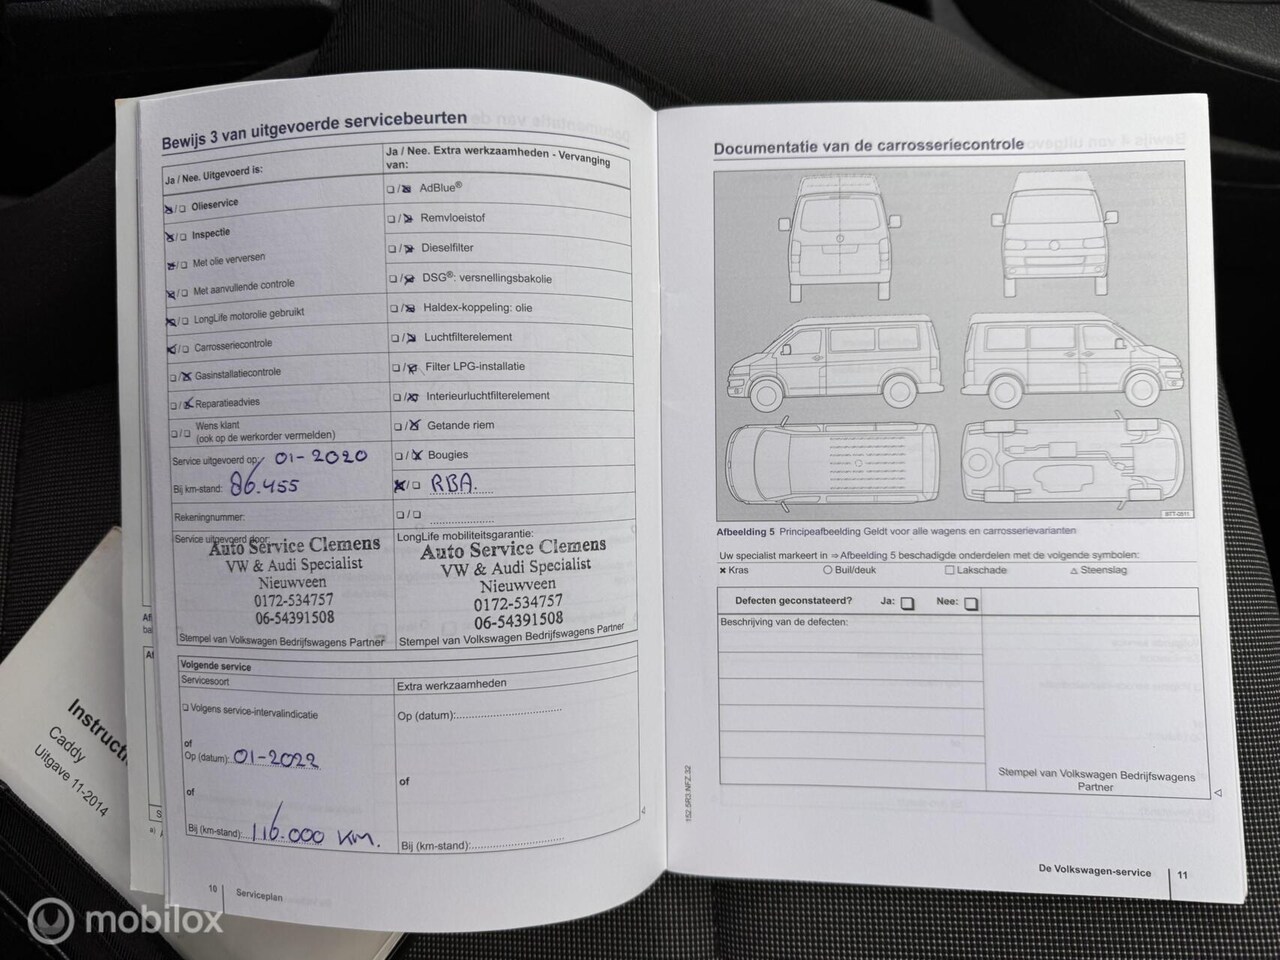 Bewijs 3 van uitgevoerde servicebeurten
Ja / Nee. Uitgevoerd is:
☒/☐ Olieservice
☒/☐ Inspectie
☒/☐ Met olie verversen
☒/☐ Met aanvullende controle
☒/☐ LongLife motorolie gebruikt
☒/☐ Carrosseriecontrole
☐/☒ Gasinstallatiecontrole
☐/☒ Reparatieadvies
☐/☐ Wens klant
(ook op de werkorder vermelden)
Service uitgevoerd op: 01-2020
Bij km-stand: 86.455
Rekeningnummer:
Service uitgevoerd door:
Auto Service Clemens
VW & Audi Specialist
Nieuwveen
0172-534757
06-54391508
Stempel van Volkswagen Bedrijfswagens Partner
Ja / Nee. Extra werkzaamheden - Vervanging
van:
☐/☒ AdBlue®
☐/☒ Remvloeistof
☐/☒ Dieselfilter
☐/☒ DSG®: versnellingsbakolie
☐/☒ Haldex-koppeling: olie
☐/☒ Luchtfilterelement
☐/☒ Filter LPG-installatie
☐/☒ Interieurluchtfilterelement
☐/☒ Getande riem
☐/☒ Bougies
☒/☐ RBA.
☐/☐
LongLife mobiliteitsgarantie:
Auto Service Clemens
VW & Audi Specialist
Nieuwveen
0172-534757
06-54391508
Stempel van Volkswagen Bedrijfswagens Partner
Volgende service
Servicesoort
☐ Volgens service-intervalindicatie
of
Op (datum): 01-2022
of
Bij (km-stand): 116.000 KM.
Extra werkzaamheden
Op (datum):
of
Bij (km-stand):
10 Serviceplan
Documentatie van de carrosseriecontrole
B7T-0511
Afbeelding 5 Principeafbeelding Geldt voor alle wagens en carrosserievarianten
Uw specialist markeert in ⇒ Afbeelding 5 beschadigde onderdelen met de volgende symbolen:
× Kras ○ Buil/deuk □ Lakschade △ Steenslag
Defecten geconstateerd? Ja: ☐ Nee: ☐
Beschrijving van de defecten:
Stempel van Volkswagen Bedrijfswagens
Partner
152.5R3.NFZ.32
De Volkswagen-service 11
Caddy
Uitgave 11-2014
mobilox